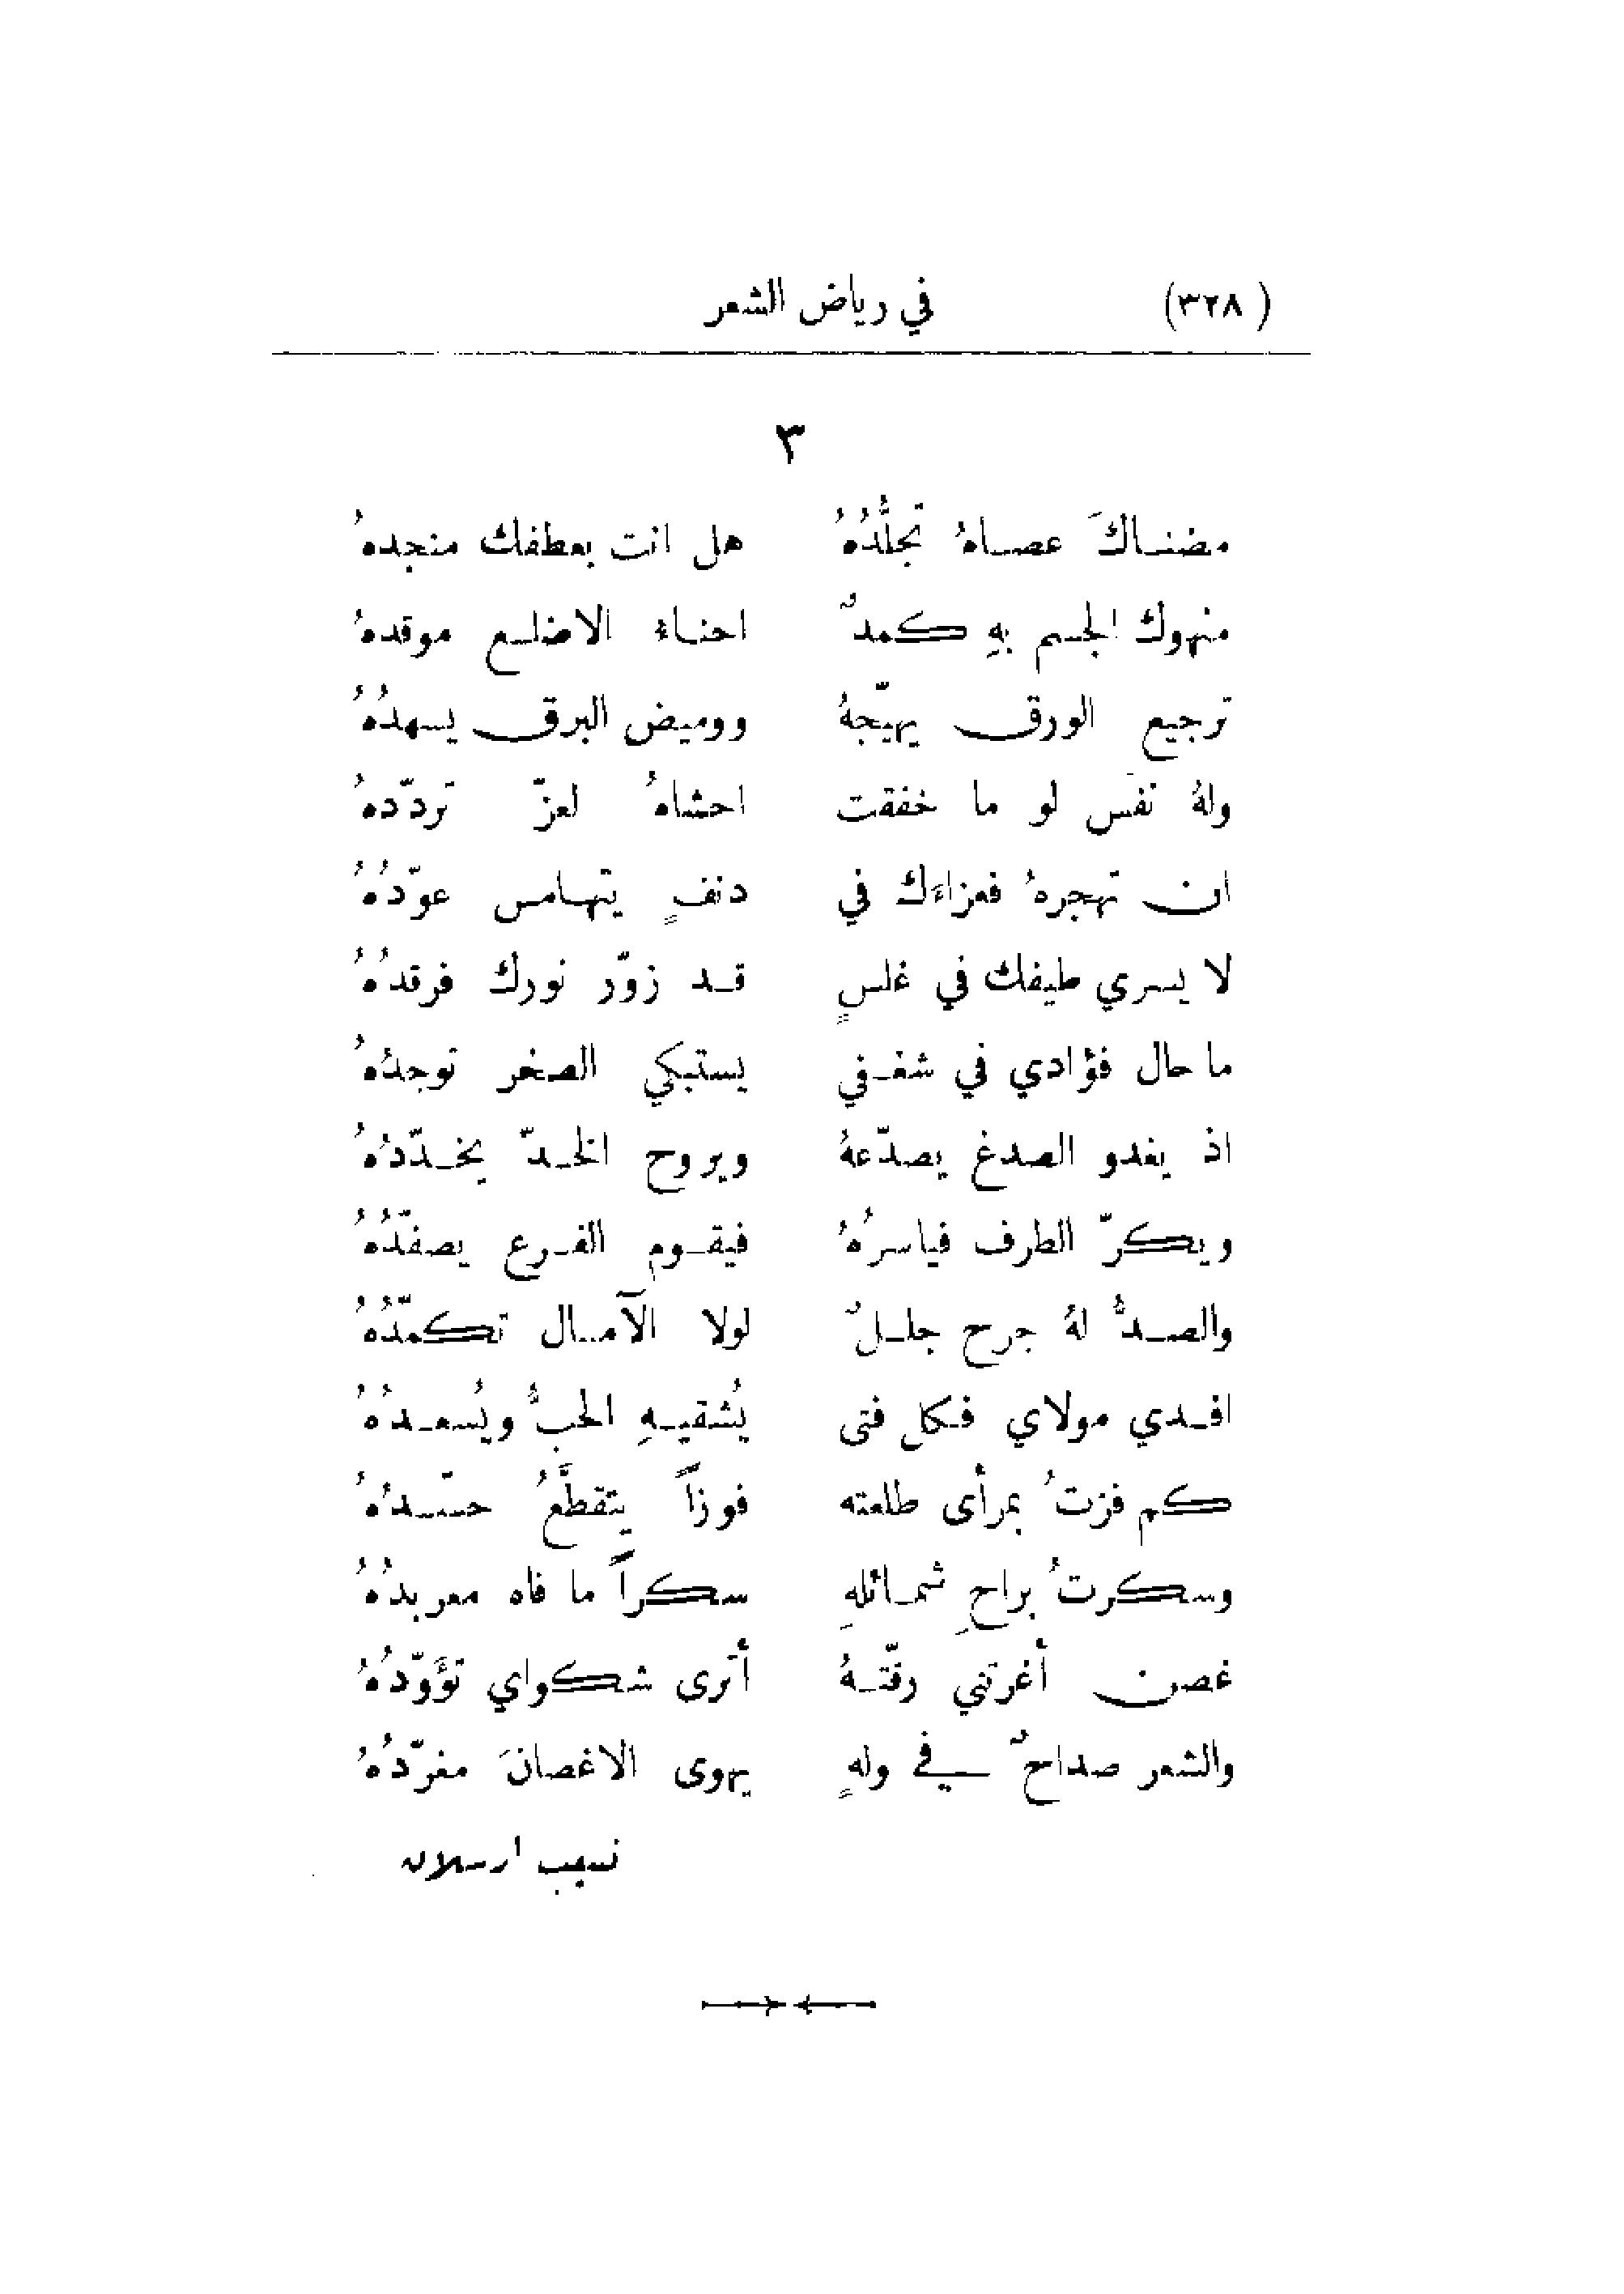 (٣٢٨) في رياض الشعر
٣
مضناكَ عصاهُ تجلُّدُهُ هل انت بعطفك منجدهُ
منهوك الجسم بهِ كمدٌ احناءُ الاضلع موقدهُ
ترجيع الورق يهيّجهُ ووميض البرق يسهدُهُ
ولهُ نفَس لو ما خفقت احشاهُ لعزّ تردّدهُ
ان تهجرهُ فعزاءَك في دنفٍ يتهامس عوّدُهُ
لا يسري طيفك في غلسٍ قد زوّر نورك فرقدُهُ
ما حال فؤادي في شغفي يستبكي الصخر توجدُهُ
اذ يغدو الصدغ يصدّعهُ ويروح الخدّ يخدّدُهُ
ويكرّ الطرف فياسرُهُ فيقوم الفرع يصفّدُهُ
والصدُّ لهُ جرح جللٌ لولا الآمال تكمّدُهُ
افدي مولاي فكل فتى يُشقيهِ الحبُّ ويُسعدُهُ
كم فزتُ بمرأى طلعته فوزاً يتقطَّعُ حسّدُهُ
وسكرتُ براحِ شمائلهِ سكراً ما فاه معربدُهُ
غصن أغرتني رقّتهُ أترى شكواي تؤَوّدُهُ
والشعر صداحٌ في ولهٍ يهوى الاغصانَ مغرّدُهُ
نسيب ارسلان